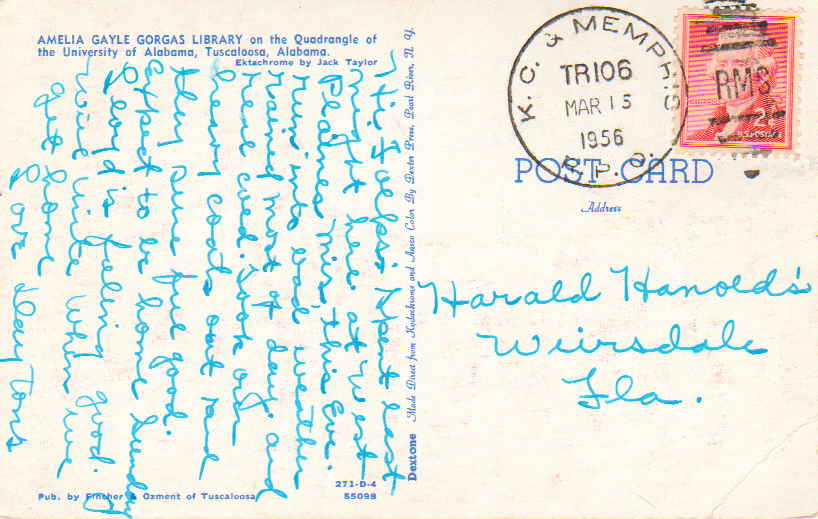 AMELIA GAYLE GORGAS LIBRARY on the Quadrangle of
the University of Alabama, Tuscaloosa, Alabama.
Ektachrome by Jack Taylor
Hi Folks: Spent last
night here at West
Plaines, Mis, this Eve.
Run into bad weather
rained most of day and
real cold. Took our
heavy coats out and
they sure feel good.
Expect to be home Sunday
is feeling good.
Will write when we
get home
Love
Pub. by Fincher & Ozment of Tuscaloosa
271-D-4
55098
Dextone Made Direct from Kodachrome and Ansco Color By Dexter Press, Pearl River, N. Y.
K.C. & MEMPHIS
TR106
MAR 15
1956
R.P.O.
RMS
2¢
U.S. POSTAGE
POST CARD
Address
Harald Hanold's
Weirsdale
Fla.